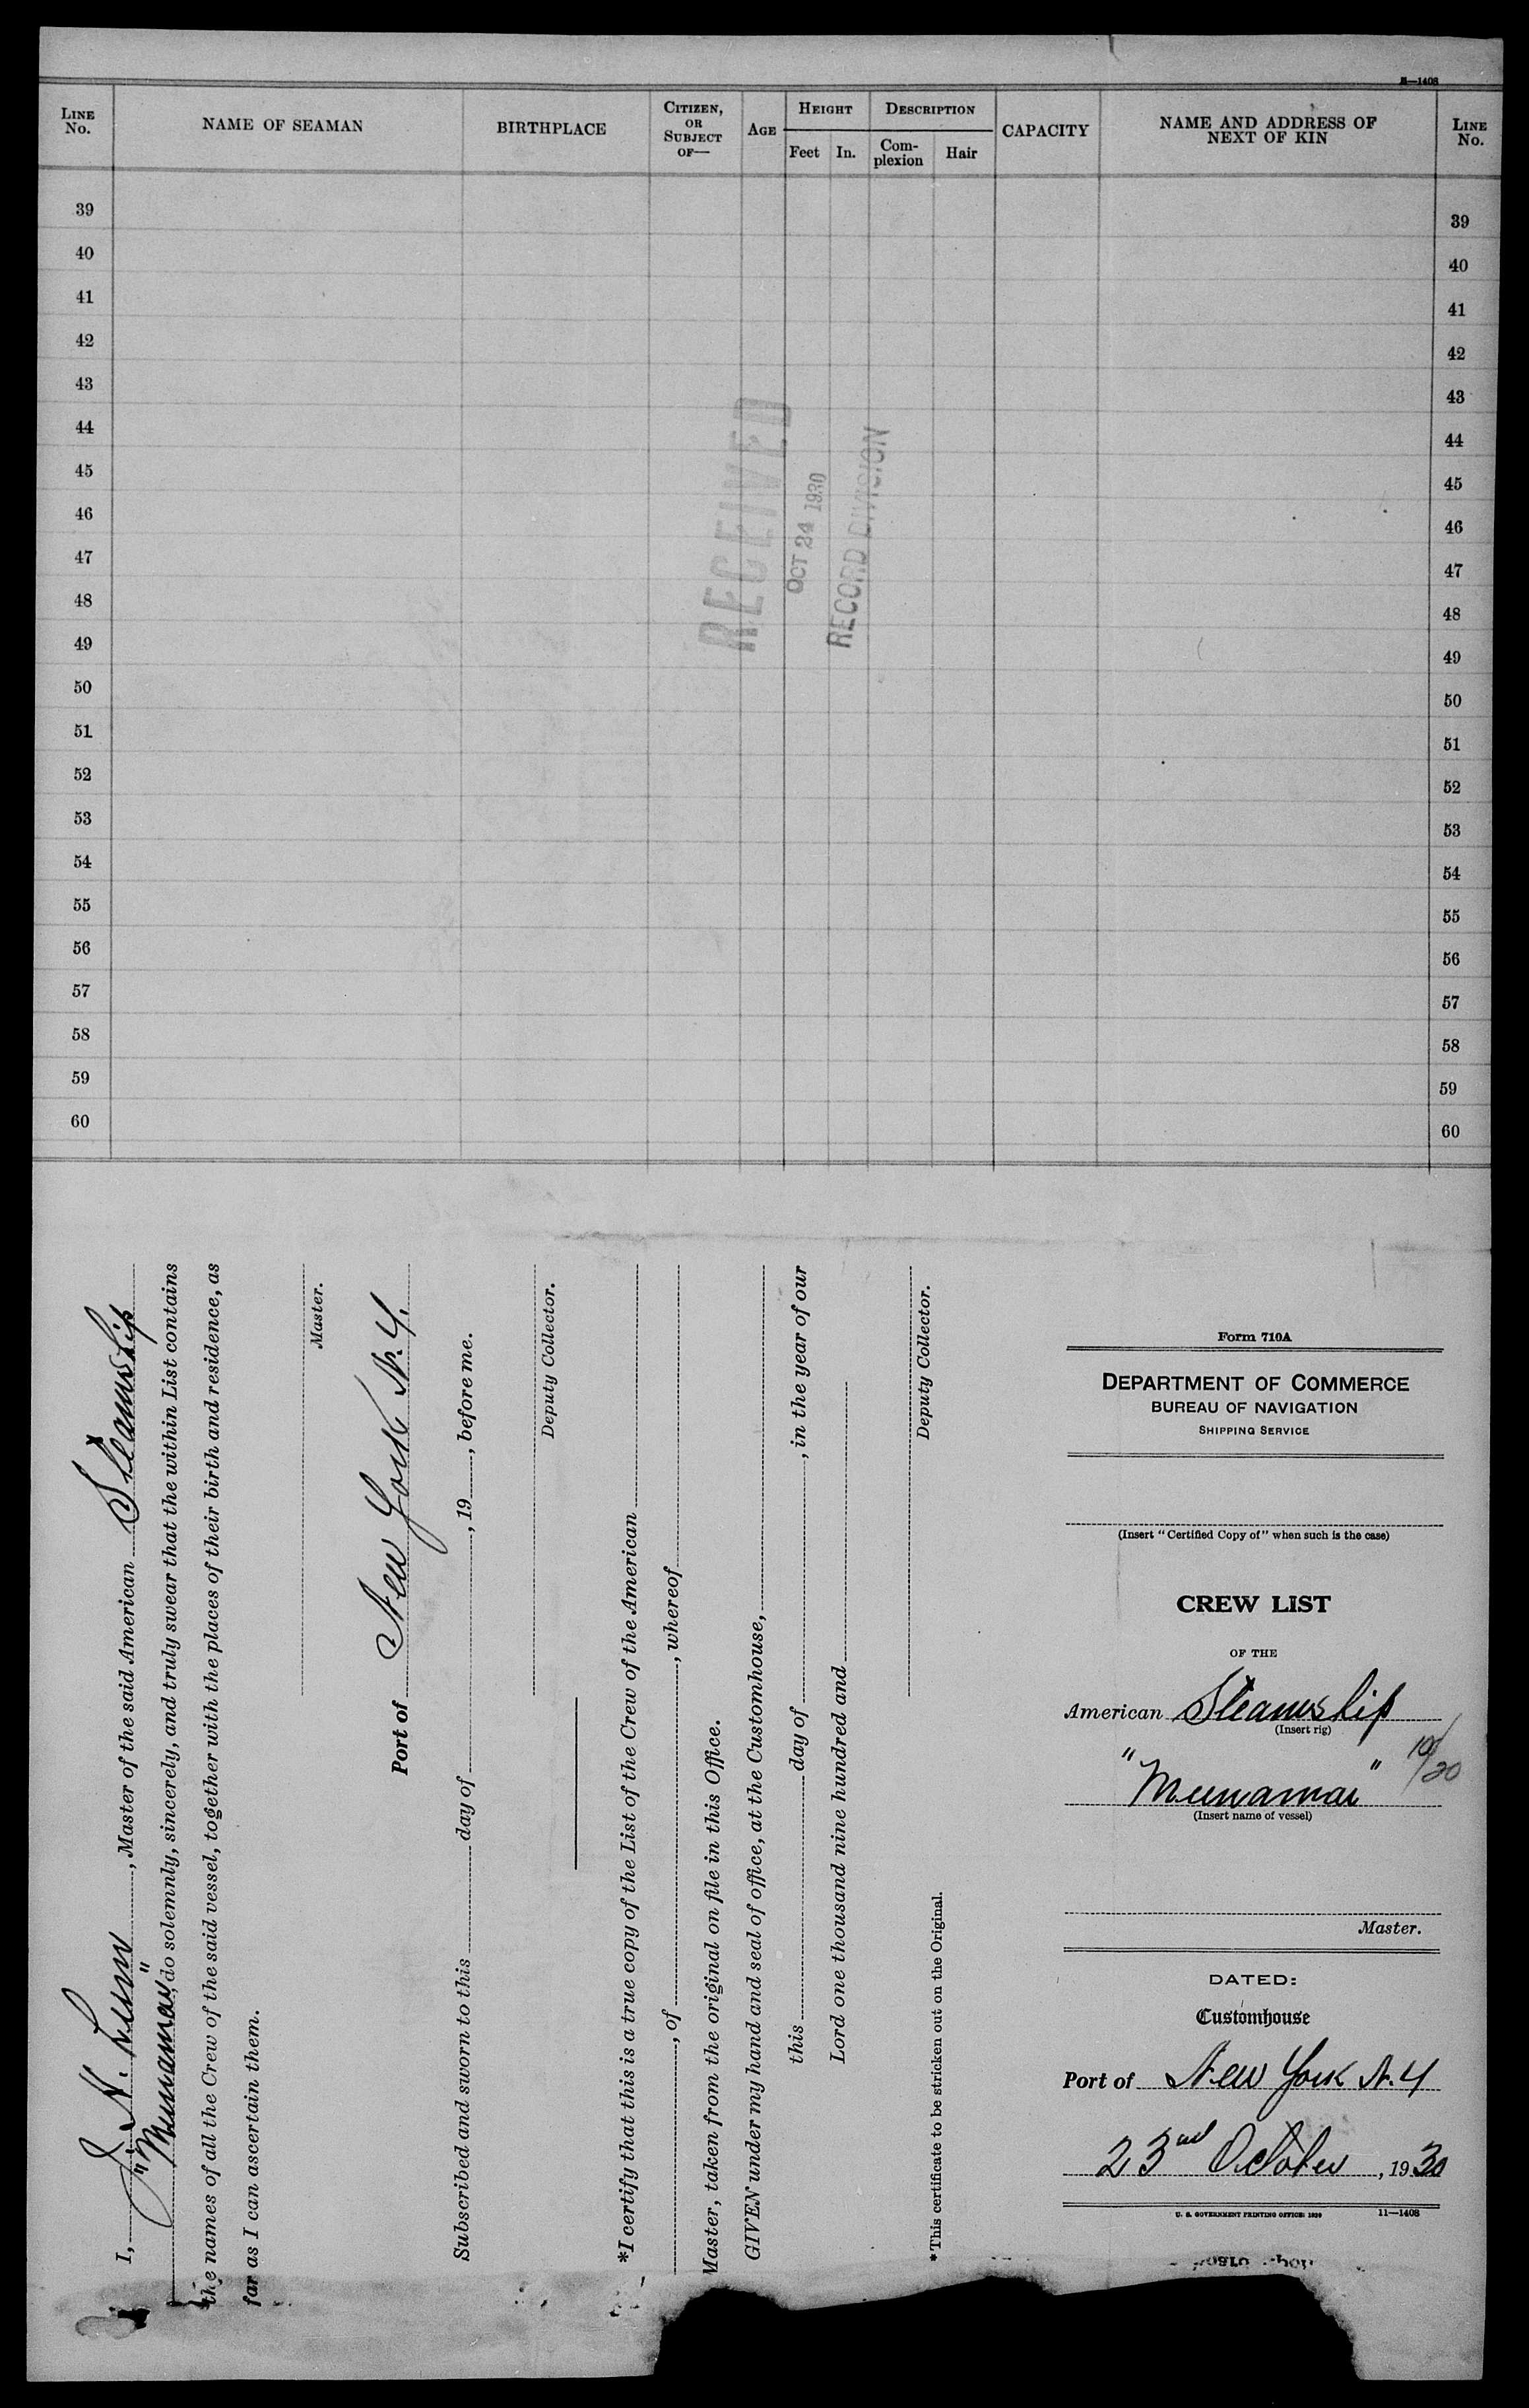 11—1408
LINE No. NAME OF SEAMAN BIRTHPLACE CITIZEN, OR SUBJECT OF— AGE HEIGHT Feet In. DESCRIPTION Com-plexion Hair CAPACITY NAME AND ADDRESS OF NEXT OF KIN LINE No.
39 39
40 40
41 41
42 42
43 43
44 44
45 45
46 46
47 47
48 48
49 49
50 50
51 51
52 52
53 53
54 54
55 55
56 56
57 57
58 58
59 59
60 60
RECEIVED
OCT 24 1930
RECORD DIVISION
I, J. N. , Master of the said American Steamship
"Munamar", do solemnly, sincerely, and truly swear that the within List contains
the names of all the Crew of the said vessel, together with the places of their birth and residence, as
far as I can ascertain them.
Master.
Port of New York N.Y.
Subscribed and sworn to this day of , 19 , before me.
Deputy Collector.
*I certify that this is a true copy of the List of the Crew of the American
, of , whereof
Master, taken from the original on file in this Office.
GIVEN under my hand and seal of office, at the Customhouse,
this day of , in the year of our
Lord one thousand nine hundred and
Deputy Collector.
*This certificate to be stricken out on the Original.
Form 710A
DEPARTMENT OF COMMERCE
BUREAU OF NAVIGATION
SHIPPING SERVICE
(Insert "Certified Copy of" when such is the case)
CREW LIST
OF THE
American Steamship
(Insert rig)
"Munamar"
(Insert name of vessel)
Master.
DATED:
Customhouse
Port of New York N.Y
23rd October , 1930
U. S. GOVERNMENT PRINTING OFFICE: 1929 11—1408